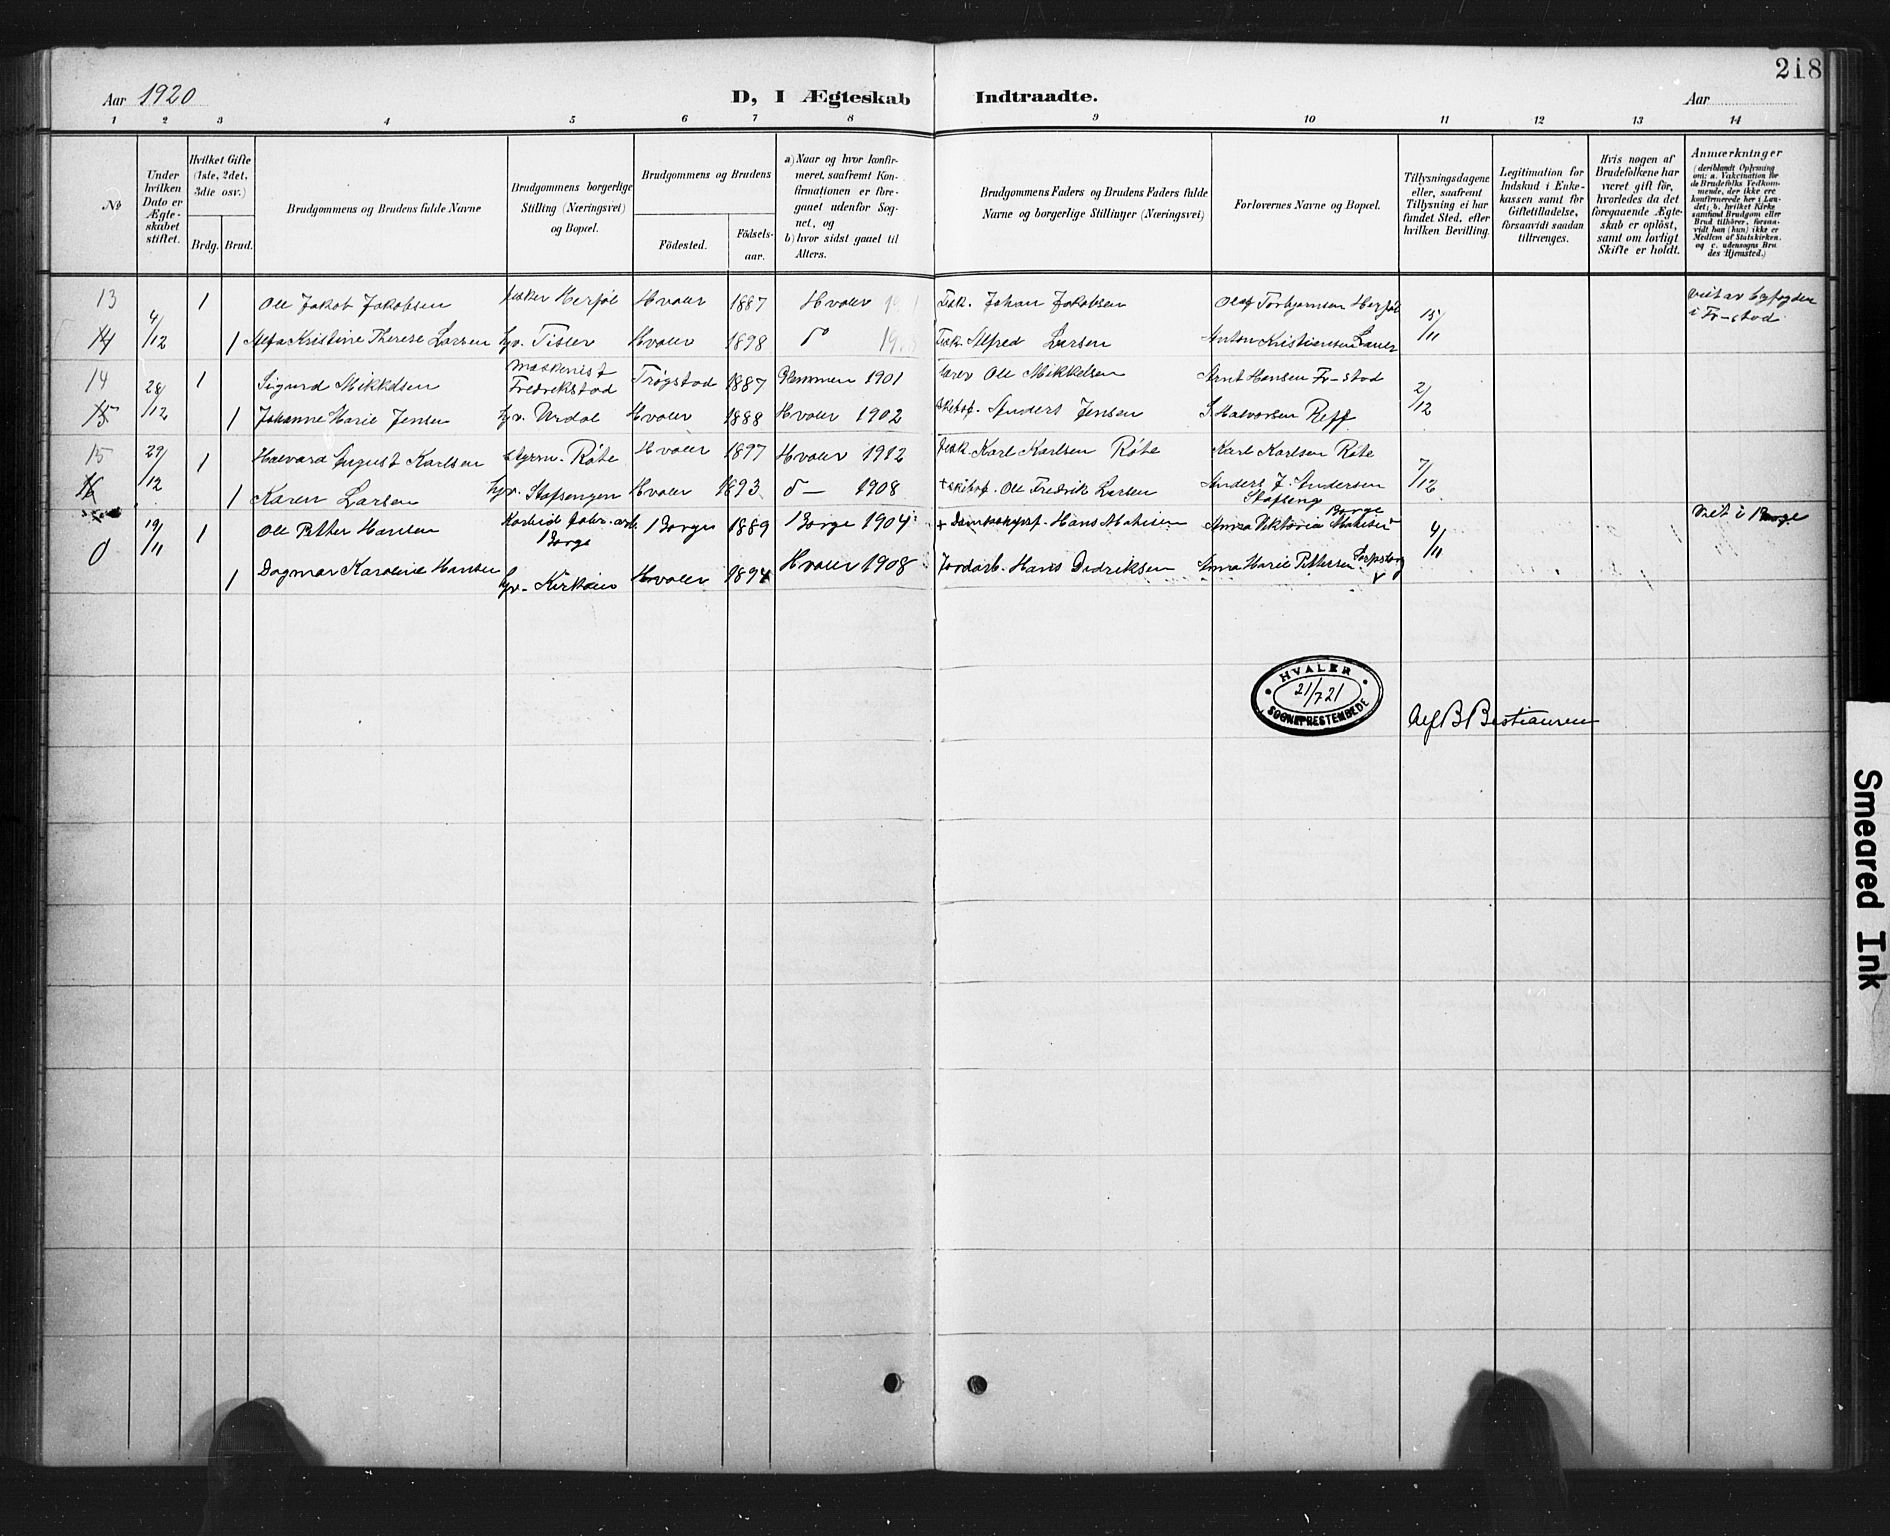 218
Aar 1920
D, I Ægteskab Indtraadte.
Aar
1 2 3 4 5 6 7 8 9 10 11 12 13 14
No
Under hvilken Dato er Ægteskabet stiftet.
Hvilket Gifte (1ste, 2det, 3die osv.)
Brdg. Brud.
Brudgommens og Brudens fulde Navne
Brudgommens borgerlige Stilling (Næringsvei) og Bopæl.
Brudgommens og Brudens
Födested.
Födsels-aar.
a) Naar og hvor konfir-
meret, saafremt Kon-
firmationen er fore-
gaaet udenfor Sog-
net, og
b) hvor sidst gaaet til
Alters.
Brudgommens Faders og Brudens Faders fulde
Navne og borgerlige Stillinger (Næringsvei)
Forlovernes Navne og Bopæl.
Tillysningsdagene
eller, saafremt
Tillysning ei har
fundet Sted, efter
hvilken Bevilling.
Legitimation for
Indskud i Enke-
kassen samt for
Giftetilladelse,
forsaavidt saadan
tiltrænges.
Hvis nogen af
Brudefolkene har
været gift för,
hvorledes da det
foregaaende Ægte-
skab er oplöst,
samt om lovligt
Skifte er holdt.
Anmærkninger
(deriblandt Oplysning
om: a. Vakcination for
de Brudefolks Vedkom-
mende, der ikke ere
konfirmerede her i Lan-
det; b. hvilket Kirke
samfund Brudgom eller
Brud tilhörer, forsaa-
vidt han (hun) ikke er
Medlem af Statskirken,
og c. udensogns Bru
des Hjemsted.)
13 4/12 1 Ole Jakob Jakobsen fisker Herføl Hvaler 1887 Hvaler Fisk. Johan Jakobsen Olaf Torbjørnsen Herføl 15/11 viet av byfogden i Fr-stad
14 1 Kristine Therese Larsen hv. Tisler Hvaler 1898 do Fisk. Alfred Larsen Anton Kristiansen Lauer
14 28/12 1 Sigurd Mikkelsen maskenist Fredrikstad Trøgstad 1887 Glemmen 1901 Ole Mikkelsen Arnt Hansen Fr-stad 2/12
15 1 Johanne Marie Jensen hv. Urdal Hvaler 1888 Hvaler 1902 Anders Jensen S Halvorsen Reff
15 29/12 1 Halvard August Karlsen styrm. Røte Hvaler 1897 Hvaler 1912 fisk. Karl Karlsen Røte Karl Karlsen Røte 7/12
16 1 Karen Larsen hv. Stafsengen Hvaler 1893 do — 1908 Ole Fredrik Larsen Anders J. Andersen Stafseng
0 19/11 1 Ole Petter Hansen Borge Borge 1889 Borge 1904 Hans Mathisen Anna Viktoria Mathisen Borge 4/11 Viet i Borge
1 Dagmar Karoline Hansen hv. Kirkøen Hvaler 1894 Hvaler 1908 Jordarb. Hans Didriksen Anna Marie Pettersen Sarpsborg
HVALER
21/7 21
SOGNEPRESTEMBEDE
Alf B Bastiansen
Smeared Ink